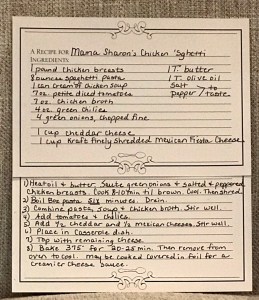 A RECIPE FOR Mama Sharon's Chicken 'Sghetti
INGREDIENTS:
1 pound chicken breasts 1 T. butter
8 ounces spaghetti pasta 1 T. olive oil
1 can cream of chicken soup Salt → to
7 oz. petite diced tomatoes Pepper → taste
7 oz. chicken broth
4 oz. green chilies
4 green onions, chopped fine
1 cup cheddar cheese
1 cup Kraft Finely Shredded Mexican Fiesta Cheese
1) Heat oil & butter. Saute green onions & salted & peppered
chicken breasts. Cook 8-10 min til brown. Cool. Then shred.
2) Boil 8oz pasta six minutes. Drain.
3) Combine pasta, soup & chicken broth. Stir well.
4) Add tomatoes & chilies.
5) Add 1/2 cheddar and 1/2 mexican cheeses. Stir well.
6) Place in casserole dish.
7) Top with remaining cheese.
8) Bake 375° for 20-25 min. Then remove from
oven to cool. May be cooked covered in foil for a
creamier cheese sauce.